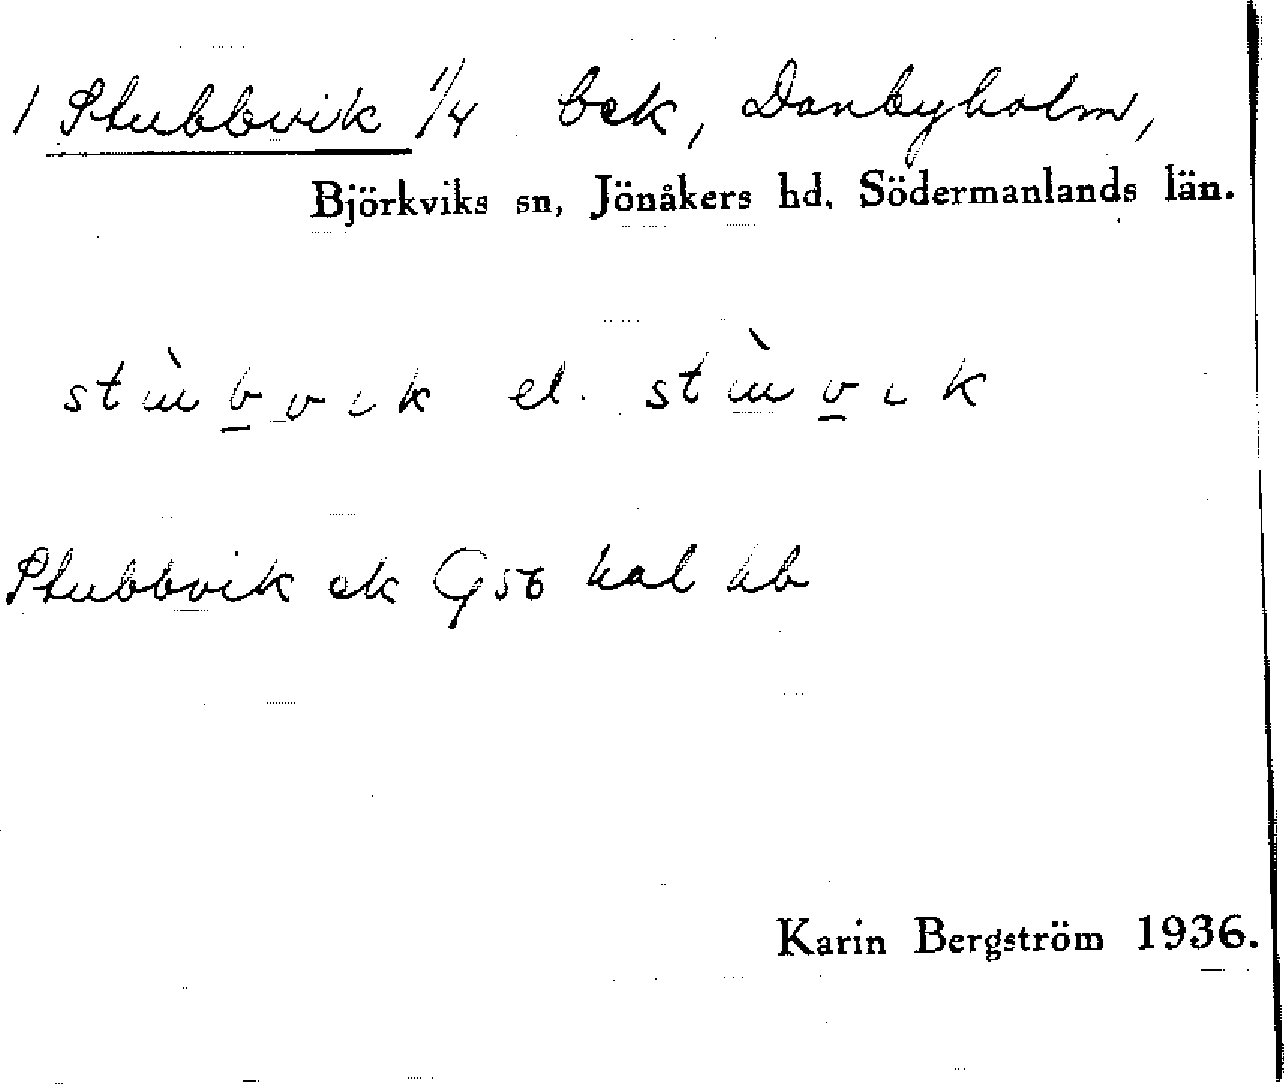 1 Stubbvik 1/4 bek, Danbyholm,
Björkviks sn, Jönåkers hd. Södermanlands län.
stùbvɩk el. stùvɩk
Stubbvik ek G 56 hal hb
Karin Bergström 1936.